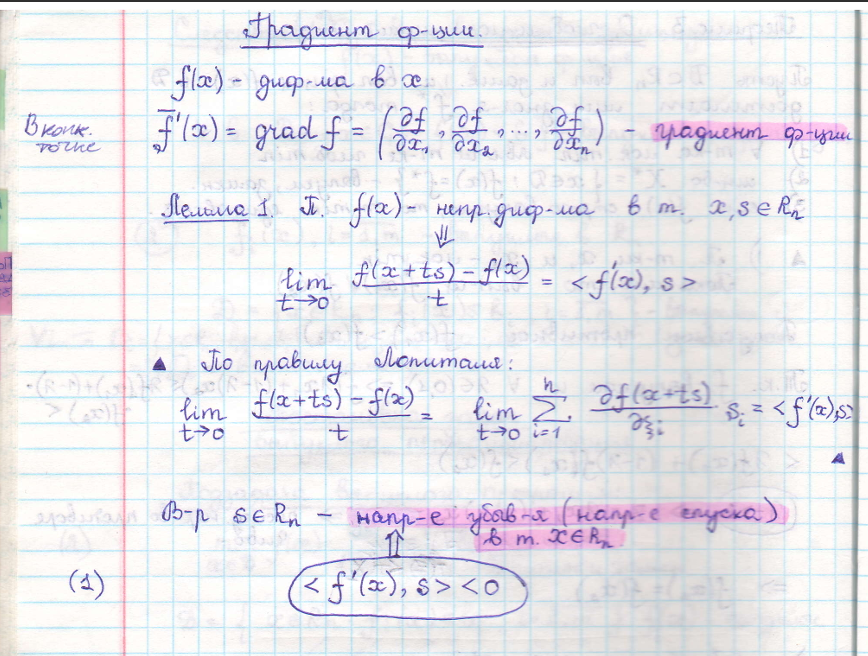 Градиент ф-ции.
f(x) - диф-ма в x
В конк. точке
f̅'(x) = grad f = (∂f/∂x₁, ∂f/∂x₂, ..., ∂f/∂xₙ) - градиент ф-ции
Лемма 1. П. f(x) - непр. диф-ма в т. x, s ∈ Rₙ
⇓
lim t→0 (f(x+ts) - f(x))/t = <f'(x), s>
▲ По правилу Лопиталя:
lim t→0 (f(x+ts) - f(x))/t = lim t→0 ∑ i=1 n ∂f(x+ts)/∂ξᵢ sᵢ = <f'(x), s>
▲
В-р s ∈ Rₙ - напр-е убыв-я (напр-е спуска)
в т. x ∈ Rₙ
⇑
(1) <f'(x), s> < 0